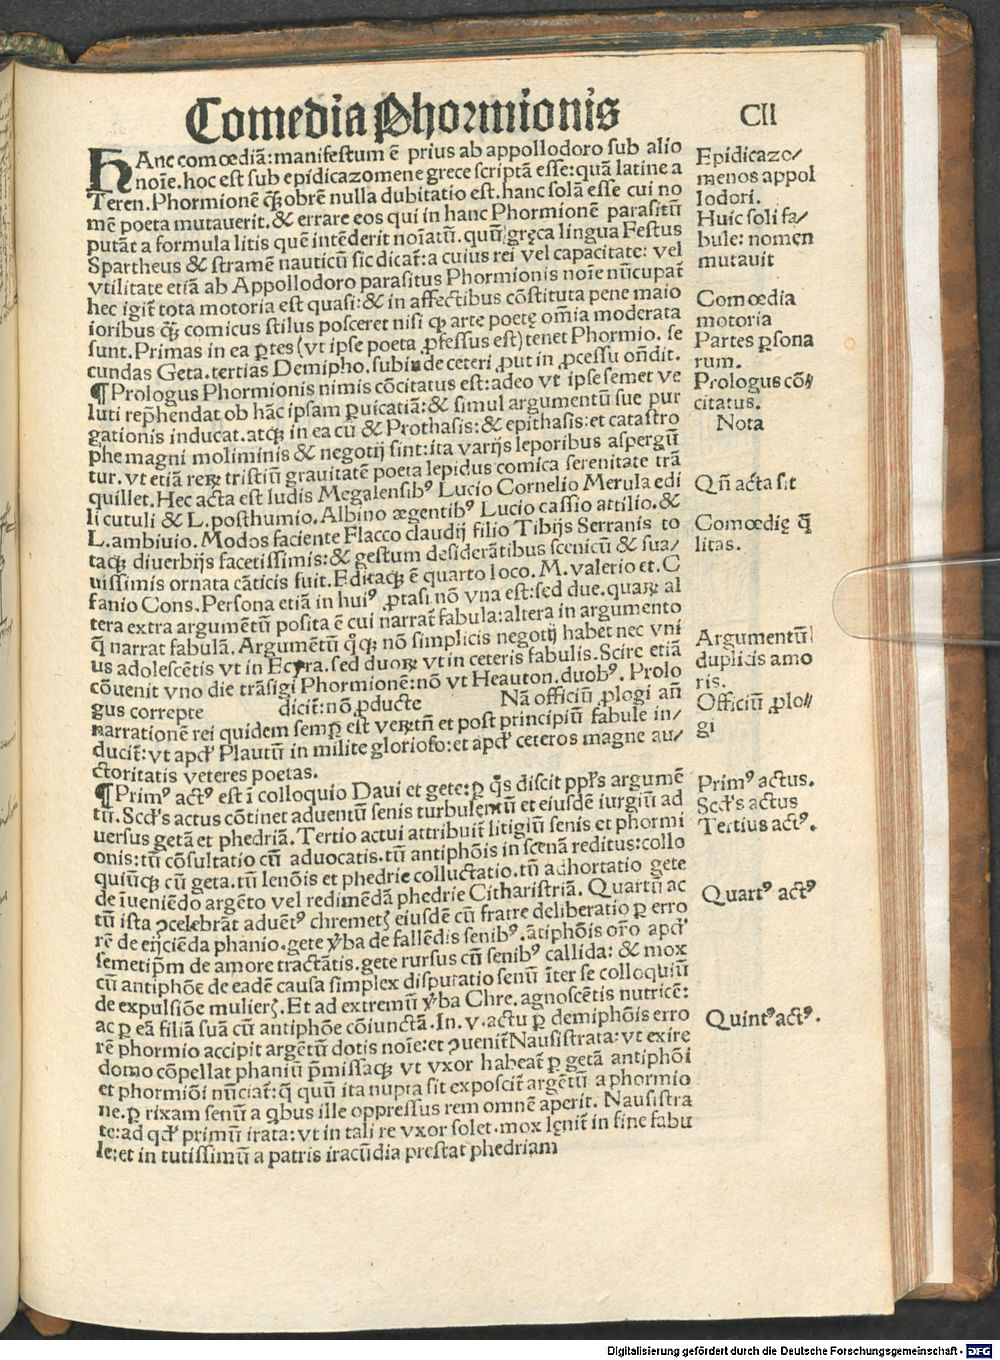 Comedia Phormionis
CII
HAnc comœdiā:manifestum ē prius ab appollodoro sub alio
noīe.hoc est sub epidicazomene grece scriptā esse:quā latine a
Teren.Phormionē qꝫobrē nulla dubitatio est.hanc solā esse cui no
mē poeta mutauerit.& errare eos qui in hanc Phormionē parasitū
putāt a formula litis quē intēderit noīatū.quū gręca lingua Festus
Spartheus & stramē nauticū sic dicat̄:a cuius rei vel capacitate: vel
vtilitate etiā ab Appollodoro parasitus Phormionis noīe nūcupat̄
hec igit̄ tota motoria est quasi:& in affectibus cōstituta pene maio
ioribus qꝫ comicus stilus posceret nisi qꝫ arte poetę om̄ia moderata
sunt.Primas in ea ꝑtes (vt ipse poeta ꝓfessus est)tenet Phormio. se
cundas Geta.tertias Demipho.subinde ceteri ꝓut in ꝓcessu oñdit.
¶Prologus Phormionis nimis cōcitatus est:adeo vt ipse semet ve
luti rep̄hendat ob hāc ipsam ꝑuicatiā:& simul argumentū sue pur
gationis inducat.atqꝫ in ea cū & Prothasis:& epithasis:et catastro
phe magni moliminis & negotij sint:ita varijs leporibus aspergū
tur.vt etiā reꝝ tristiū grauitatē poeta lepidus comica serenitate trā
quillet.Hec acta est ludis Megalensibꝰ Lucio Cornelio Merula edi
li cutuli & L.posthumio.Albino ægentibꝰ Lucio cassio attilio.&
L.ambiuio.Modos faciente Flacco claudij filio Tibijs Serranis to
taqꝫ diuerbijs facetissimis:& gestum desiderātibus scenicū & sua/
uissimis ornata cāticis fuit.Editaqꝫ ē quarto loco.M.valerio et.C
fanio Cons.Persona etiā in huiꝰ ꝓtasi nō vna est:sed due.quaꝝ al
tera extra argumētū posita ē cui narrat̄ fabula:altera in argumento
q̄ narrat fabulā.Argumētū qꝗꝫ nō simplicis negotij habet nec vni
us adolescētis vt in Ecyra.sed duoꝝ vt in ceteris fabulis.Scire etiā
cōuenit vno die trāsigi Phormionē:nō vt Heauton.duobꝰ. Prolo
gus correpte dicit̄:nō ꝓducte Nā officiū ꝓlogi añ
narrationē rei quidem semꝑ est veꝝtñ et post principiū fabule in/
ducit̄:vt apđ Plautū in milite glorioso:et apđ ceteros magne au/
ctoritatis veteres poetas.
¶Primꝰ actꝰ est ī colloquio Daui et gete:ꝑ q̄s discit pp̄ls argumē
tū.Scđs actus cōtinet aduentū senis turbulentū et eiusdē iurgiū ad
uersus getā et phedriā.Tertio actui attribuit̄ litigiū senis et phormi
onis:tū cōsultatio cū aduocatis.tū antiphōis in scenā reditus:collo
quiūqꝫ cū geta.tū lenōis et phedrie colluctatio.tū adhortatio gete
de īueniēdo argēto vel redimēdā phedrie Citharistriā. Quartū ac
tū ista ꝯcelebrāt aduētꝰ chremetꝭ eiusdē cū fratre deliberatio ꝑ erro
rē de eijciēda phanio.gete v̄ba de fallēdis senibꝰ.ātiphōis or̄o apđ
semetip̄m de amore tractātis.gete rursus cū senibꝰ callida: & mox
cū antiphōe de eadē causa simplex disputatio senū īter se colloquiū
de expulsiōe mulierꝭ.Et ad extremū v̄ba Chre.agnoscētis nutricē:
ac ꝑ eā filiā suā cū antiphōe cōiunctā.In.v.actu ꝑ demiphōis erro
rē phormio accipit argētū dotis noīe:et ꝯuenit̄ Nausistrata:vt exire
domo cōpellat phaniū p̄missaqꝫ vt vxor habeat̄ ꝑ getā antiphōi
et phormiōi nūciat̄:q̄ quū ita nupta sit exposcit̄ argētū a phormio
ne.ꝑ rixam senū a ꝗbus ille oppressus rem omnē aperit. Nausistra
te:ad qđ primū irata:vt in tali re vxor solet.mox lęnit̄ in fine fabu
le:et in tutissimū a patris iracūdia prestat phedriam
Epidicazo/
menos appol
lodori.
Huic soli fa/
bule: nomen
mutauit
Comœdia
motoria
Partes ꝑsona
rum.
Prologus cō/
citatus.
Nota
Qñ acta sit
Comœdię q̄
litas.
Argumentū
duplicis amo
ris.
Officiū ꝓlo/
gi
Primꝰ actus.
Scđs actus
Tertius actꝰ.
Quartꝰ actꝰ
Quintꝰ actꝰ.
Digitalisierung gefördert durch die Deutsche Forschungsgemeinschaft - DFG